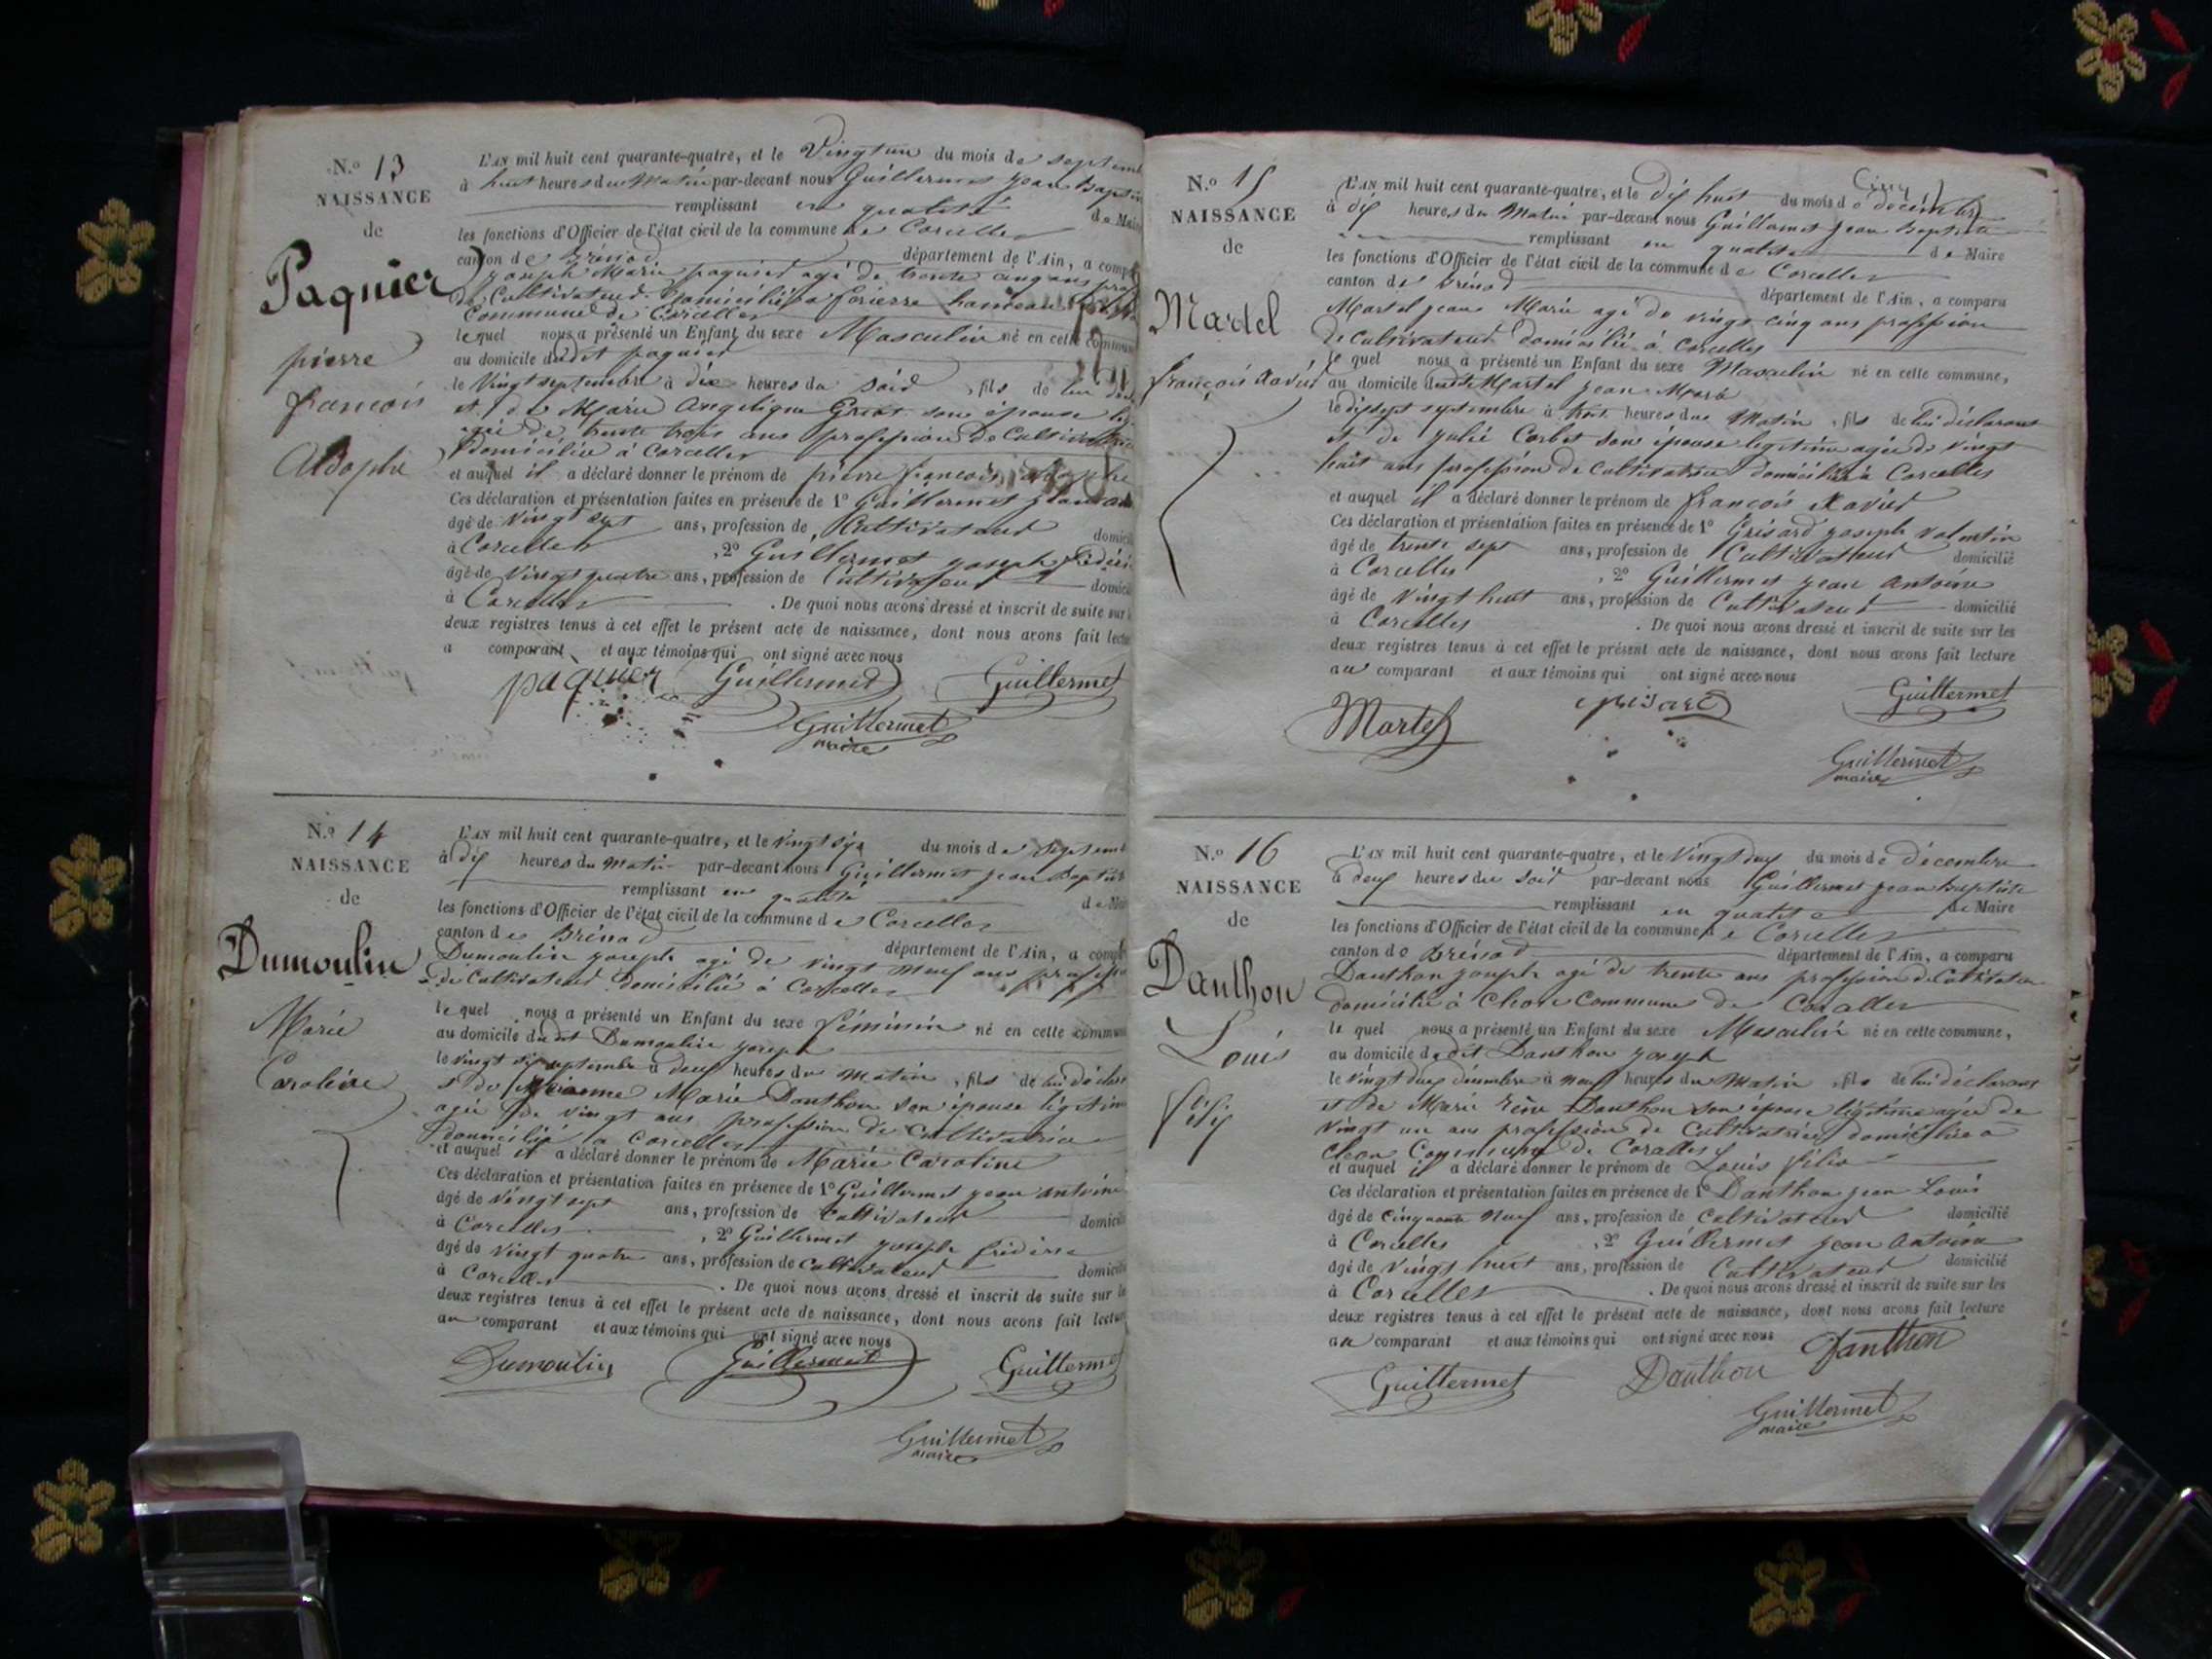 N.o 13
NAISSANCE
de
Paquier
pierre
francois
Adolphe
L'AN mil huit cent quarante-quatre, et le Vingt un du mois de septemb
à huit heures du Matin par-devant nous Guillermet jean Baptis
remplissant en qualité de Mai
les fonctions d'Officier de l'état civil de la commune de Corcelles
canton de Brénod département de l'Ain, a comp
joseph Marie paquier agé de trente cinq ans prof
de Cultivateur Domicilié a hameau
Commune de Corcelles
lequel nous a présenté un Enfant du sexe Masculin né en cette commune
au domicile dudit paquier
le Vingt septembre à dix heures du soir, fils de lui
et de Marie Angelique son épouse
agée de trente trois ans profession de Cultivatrice
Domiciliée à Corcelles
et auquel il a déclaré donner le prénom de pierre francois Adolphe
Ces déclaration et présentation faites en présence de 1.o Guillermet jean an
âgé de Vingt sept ans, profession de Cultivateur domici
à Corcelles, 2.o Guillermet joseph fédéri
âgé de Vingt quatre ans, profession de Cultivateur domici
à Corcelles. De quoi nous avons dressé et inscrit de suite sur
deux registres tenus à cet effet le présent acte de naissance, dont nous avons fait lectu
a comparant et aux témoins qui ont signé avec nous
paquier Guillermet Guillermet
Guillermet
maire
N.o 14
NAISSANCE
de
Dumoulin
Marie
Caroline
L'AN mil huit cent quarante-quatre, et le vingt six du mois de Septemb
à dix heures du matin par-devant nous Guillermet jean Baptis
remplissant en qualité de Mai
les fonctions d'Officier de l'état civil de la commune de Corcelles
canton de Brénod département de l'Ain, a comp
Dumoulin joseph agé de vingt neuf ans profession
de Cultivateur domicilié à Corcelles
lequel nous a présenté un Enfant du sexe féminin né en cette commun
au domicile dudit Dumoulin joseph
le vingt six septembre à deux heures du matin, fils de lui déclar
et de Marie Danthon son épouse légitime
agée de vingt ans profession de cultivatrice
domiciliée a Corcelles
et auquel il a déclaré donner le prénom de Marie Caroline
Ces déclaration et présentation faites en présence de 1.o Guillermet jean antoine
âgé de vingt sept ans, profession de Cultivateur domicili
à Corcelles, 2.o Guillermet joseph
âgé de vingt quatre ans, profession de Cultivateur domicili
à Corcelles. De quoi nous avons dressé et inscrit de suite sur le
deux registres tenus à cet effet le présent acte de naissance, dont nous avons fait lectur
au comparant et aux témoins qui ont signé avec nous
Dumoulin Guillermet Guillermet
Guillermet
maire
N.o 15
NAISSANCE
de
Martel
françois xavier
L'AN mil huit cent quarante-quatre, et le dix huit du mois de décembre
à dix heures du Matin par-devant nous Guillermet jean Baptiste
remplissant en qualité de Maire
les fonctions d'Officier de l'état civil de la commune de Corcelles
canton de Brénod département de l'Ain, a comparu
Martel jean Marie agé de vingt cinq ans profession
de Cultivateur domicilié à Corcelles
le quel nous a présenté un Enfant du sexe Masculin né en cette commune,
au domicile dudit Martel jean Marie
le dix sept septembre à heures du Matin, fils de lui déclarant
et de julie Corbet son épouse legitime agée de vingt
huit ans profession de Cultivatrice domiciliée à Corcelles
et auquel il a déclaré donner le prénom de françois Xavier
Ces déclaration et présentation faites en présence de 1.o Grisard joseph valentin
âgé de trente sept ans, profession de Cultivateur domicilié
à Corcelles, 2.o Guillermet jean antoine
âgé de vingt huit ans, profession de Cultivateur domicilié
à Corcelles. De quoi nous avons dressé et inscrit de suite sur les
deux registres tenus à cet effet le présent acte de naissance, dont nous avons fait lecture
au comparant et aux témoins qui ont signé avec nous
Martel grisard Guillermet
Guillermet
maire
N.o 16
NAISSANCE
de
Danthon
Louis
L'AN mil huit cent quarante-quatre, et le Vingt deux du mois de décembre
à deux heures du soir par-devant nous Guillermet jean Baptiste
remplissant en qualité de Maire
les fonctions d'Officier de l'état civil de la commune de Corcelles
canton de Brénod département de l'Ain, a comparu
Danthon joseph agé de trente ans profession de Cultivateur
domicilié à Commune de Corcelles
le quel nous a présenté un Enfant du sexe Masculin né en cette commune,
au domicile dudit Danthon joseph
le vingt deux décembre à neuf heures du Matin, fils de lui déclarant
et de Marie Danthon son épouse légitime agée de
Vingt un ans profession de Cultivatrice domiciliée à
Commune de Corcelles
et auquel il a déclaré donner le prénom de Louis
Ces déclaration et présentation faites en présence de 1.o Danthon jean Louis
âgé de Cinquante Neuf ans, profession de Cultivateur domicilié
à Corcelles, 2.o Guillermet jean antoine
âgé de vingt huit ans, profession de Cultivateur domicilié
à Corcelles. De quoi nous avons dressé et inscrit de suite sur les
deux registres tenus à cet effet le présent acte de naissance, dont nous avons fait lecture
au comparant et aux témoins qui ont signé avec nous Danthon
Guillermet Danthon
Guillermet
maire